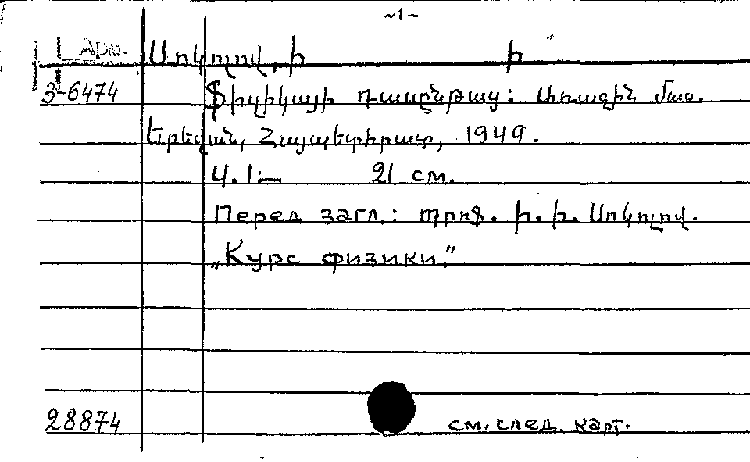 ~1~
Арм. Սոկոլով, Ի Ի
3-6474 Ֆիզիկայի դասընթաց: Առաջին մաս.
Երևան, Հայպետհրատ, 1949.
Ч. 1.— 21 см.
Перед загл.: պրոֆ. Ի. Ի. Սոկոլով.
„Курс физики."
28874 см. след. карт.